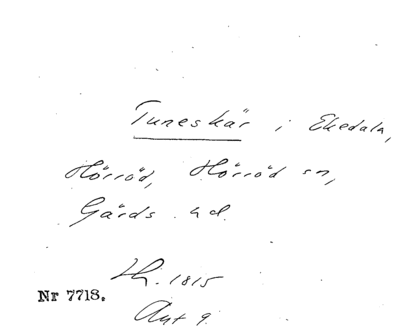 Tuneskär i Ekedala,
Hörröd, Hörröd sn,
Gärds hd.
Lh. 1815
Nr 7718.
Akt 9.